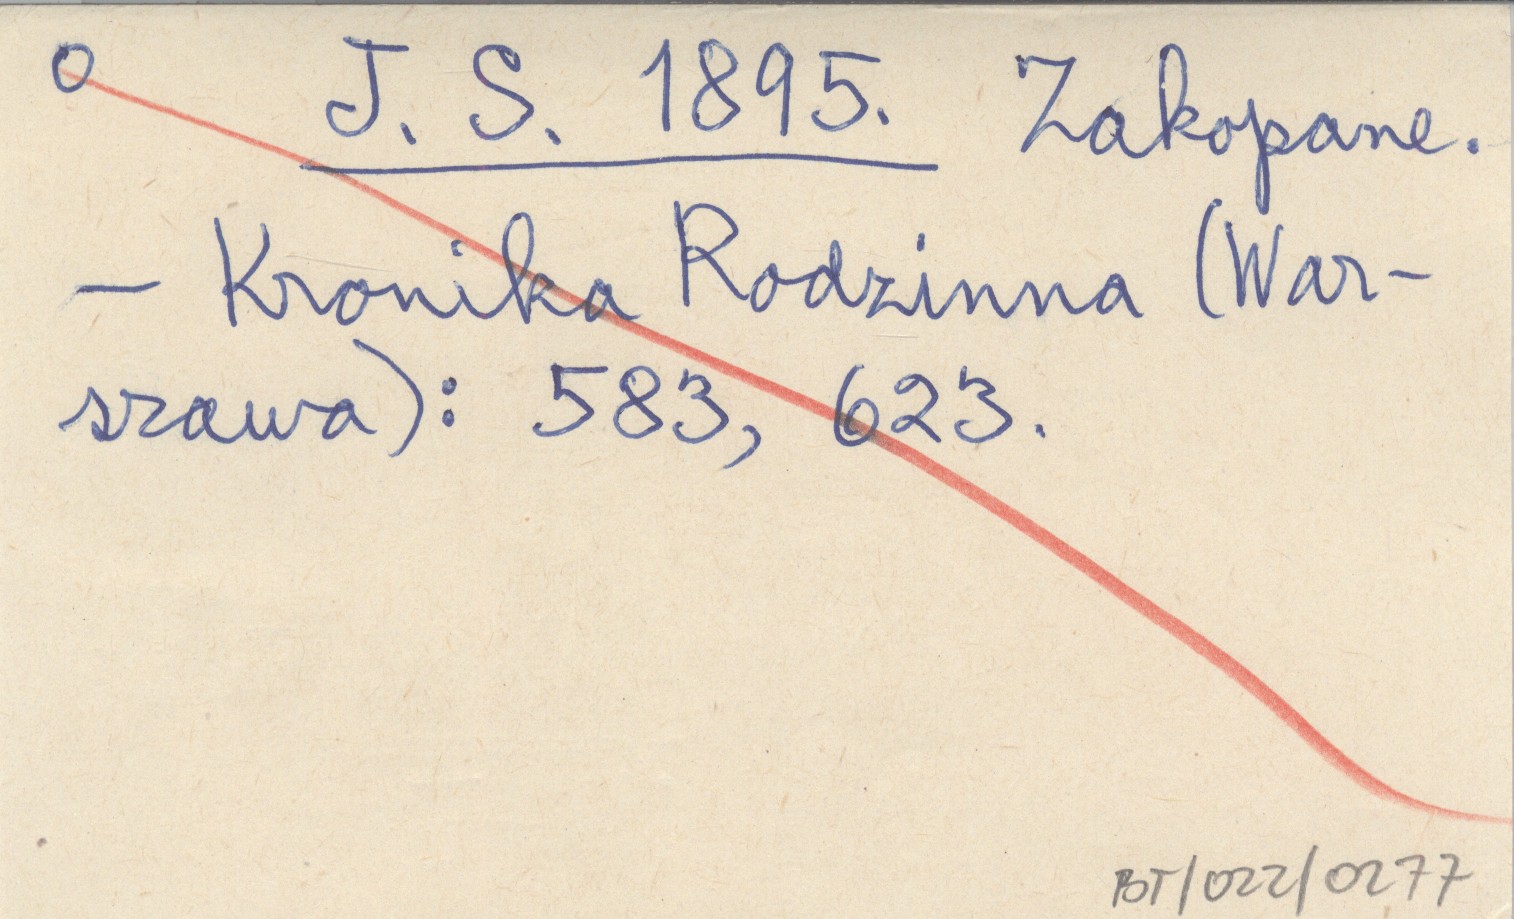 O J. S. 1895. Zakopane.
– Kronika Rodzinna (War-
szawa): 583, 623.
BT/022/0277